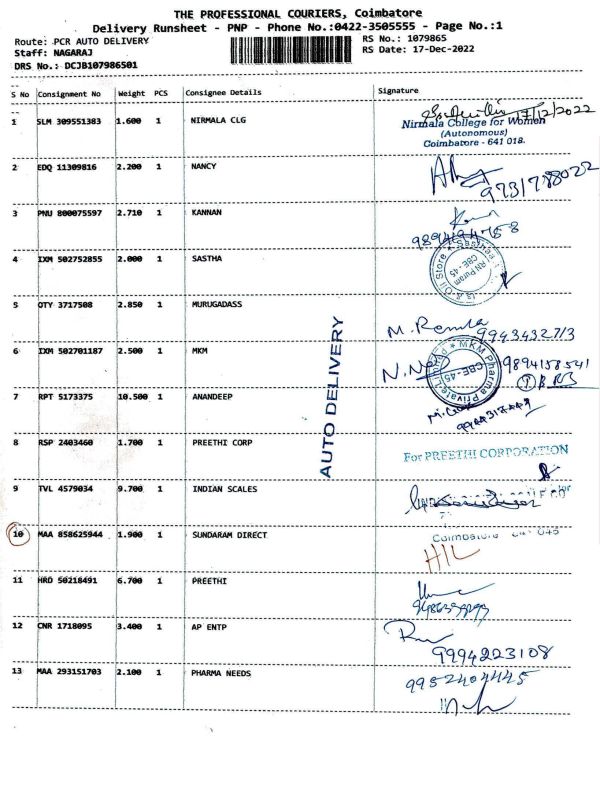 THE PROFESSIONAL COURIERS, Coimbatore
Delivery Runsheet - PNP - Phone No.:0422-3505555 - Page No.:1
Route: PCR AUTO DELIVERY
RS No.: 1079865
Staff: NAGARAJ
RS Date: 17-Dec-2022
DRS No.: DCJB107986501
S No Consignment No Weight PCS Consignee Details Signature
1 SLM 309551383 1.600 1 NIRMALA CLG
17/12/2022
Nirmala College for Women
(Autonomous)
Coimbatore - 641 018.
2 EDQ 11309816 2.200 1 NANCY
3 PNU 800075597 2.710 1 KANNAN
4 IXM 502752855 2.000 1 SASTHA
CBE - 45
5 OTY 3717508 2.850 1 MURUGADASS
M. Remla
9943432713
6 IXM 502701187 2.500 1 MKM
MKM Pharma Private Limited
CBE-45
9894158541
7 RPT 5173375 10.500 1 ANANDEEP
AUTO DELIVERY
8 RSP 2403460 1.700 1 PREETHI CORP
For PREETHI CORPORATION
9 TVL 4579034 9.700 1 INDIAN SCALES
10 MAA 858625944 1.900 1 SUNDARAM DIRECT
Coimbatore
H/L
11 HRD 50218491 6.700 1 PREETHI
12 CNR 1718095 3.400 1 AP ENTP
9994223108
13 MAA 293151703 2.100 1 PHARMA NEEDS
9952404445